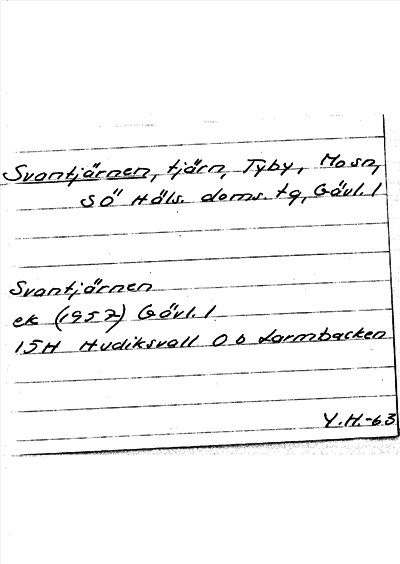 Svantjärnen, tjärn, Tyby, Mosn,
SÖ Häls. doms. tg, Gävl. l
Svantjärnen
ek (1957) Gävl. l
15H Hudiksvall 0 b Larmbacken
Y.H.-63